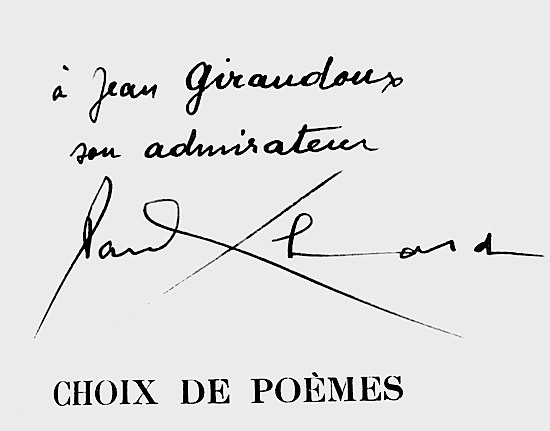 à Jean Giraudoux
son admirateur
Paul Eluard
CHOIX DE POÈMES